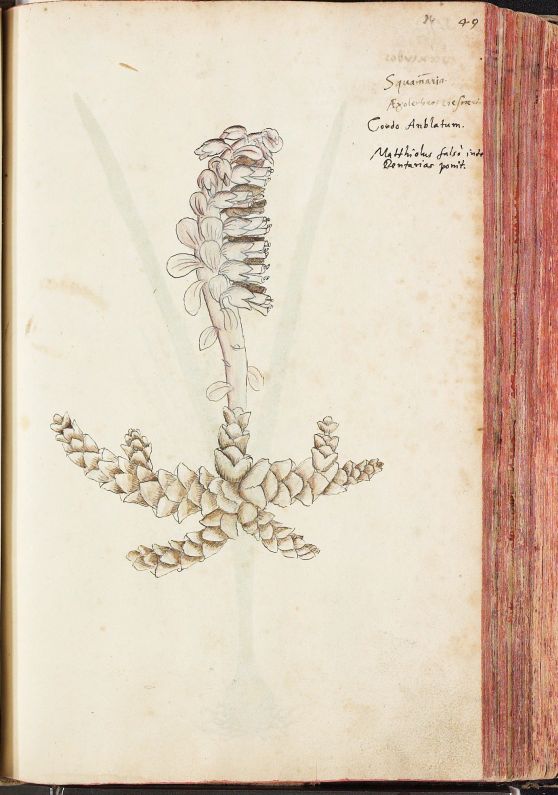 49
Squam̄aria.
Cordo Anblatum.
Matthiolus falso inter
Dentarias ponit.